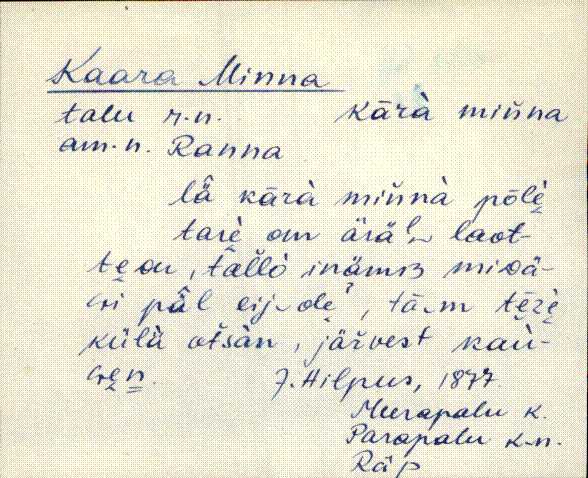 Kaara Minna
talu r.n. kārà miňna
am.n. Ranna
lǟ kārà miňnà põlè
tarè om ärä laot-
tᴇᴅᴜ, tällò inämʙ midä-
gi päl eij ole', tä m tēzè
külä otsàn, järvest kau-
gen. J. Hilpus, 1877
Meerapalu k.
Parapalu k-n.
Räp